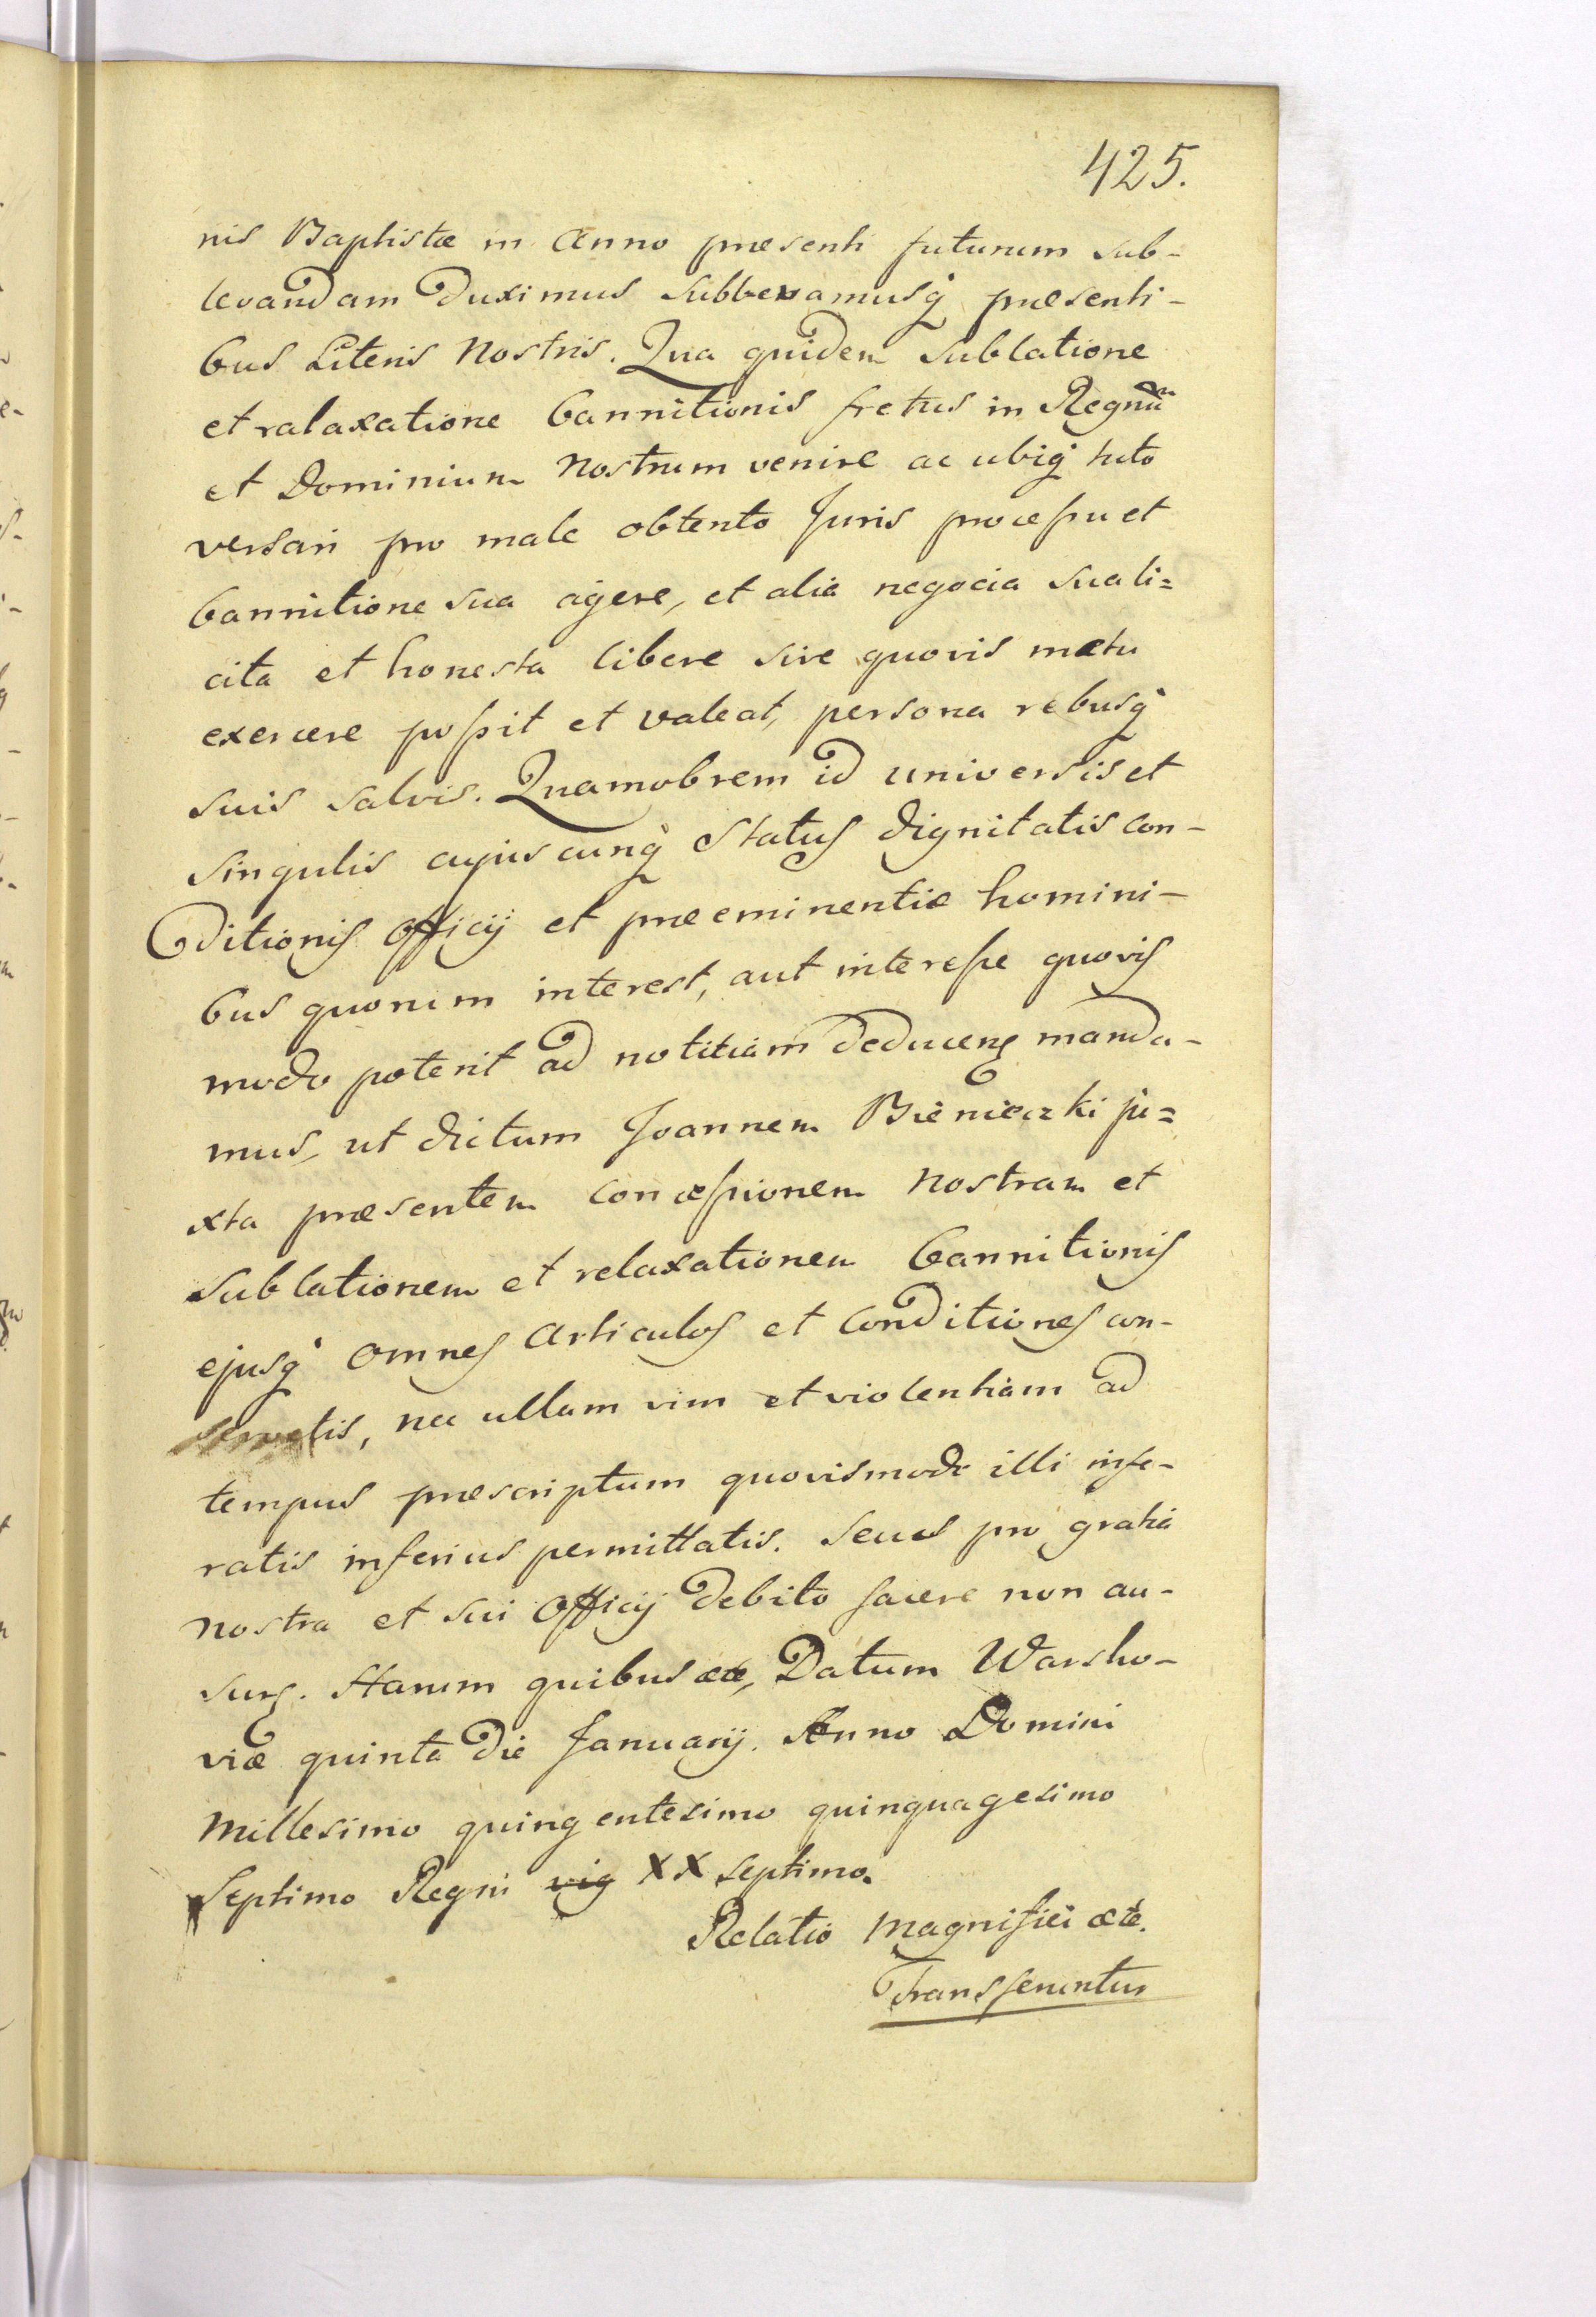 425.
nis Baptistæ in Anno præsenti futurum sub-
levandam Duximus subbevamusq́ præsenti-
bus Literis Nostris. Qua quidem sublatione
et ralaxatione bannitionis fretus in Regnũ
et Dominium Nostrum venire ac ubiq́ tuto
versari pro male obtento Juris processu et
bannitione sua agere, et alia negocia sua li=
cita et honesta libere sive quovis metu
exercere possit et valeat, persona rebusq́
suis salvis. Quamobrem id universis et
singulis cujuscunq́ Status Dignitatis con-
ditionis Officij et præeminentiæ homini-
bus quorum interest, aut interesse quovis
modo poterit ad notitiam deducens manda-
mus, ut dictum Joannem Bienieczki ju=
xta præsentem concessionem Nostram et
sublationem et relaxationem bannitionis
ejusq́ omnes Articulos et conditiones con-
servetis, nec ullam vim et violentiam ad
tempus præscriptum quovismodo illi infe-
ratis inferius permittatis. Secus pro gratia
nostra et sui Officij debito facere non au-
surs. Harum quibus etc, Datum Warsho-
viæ quinta die Januarij. Anno Domini
Millesimo quingentesimo quinquagesimo
Septimo Regni vig XX septimo.
Relatio Magnifici etc.
Transferuntur